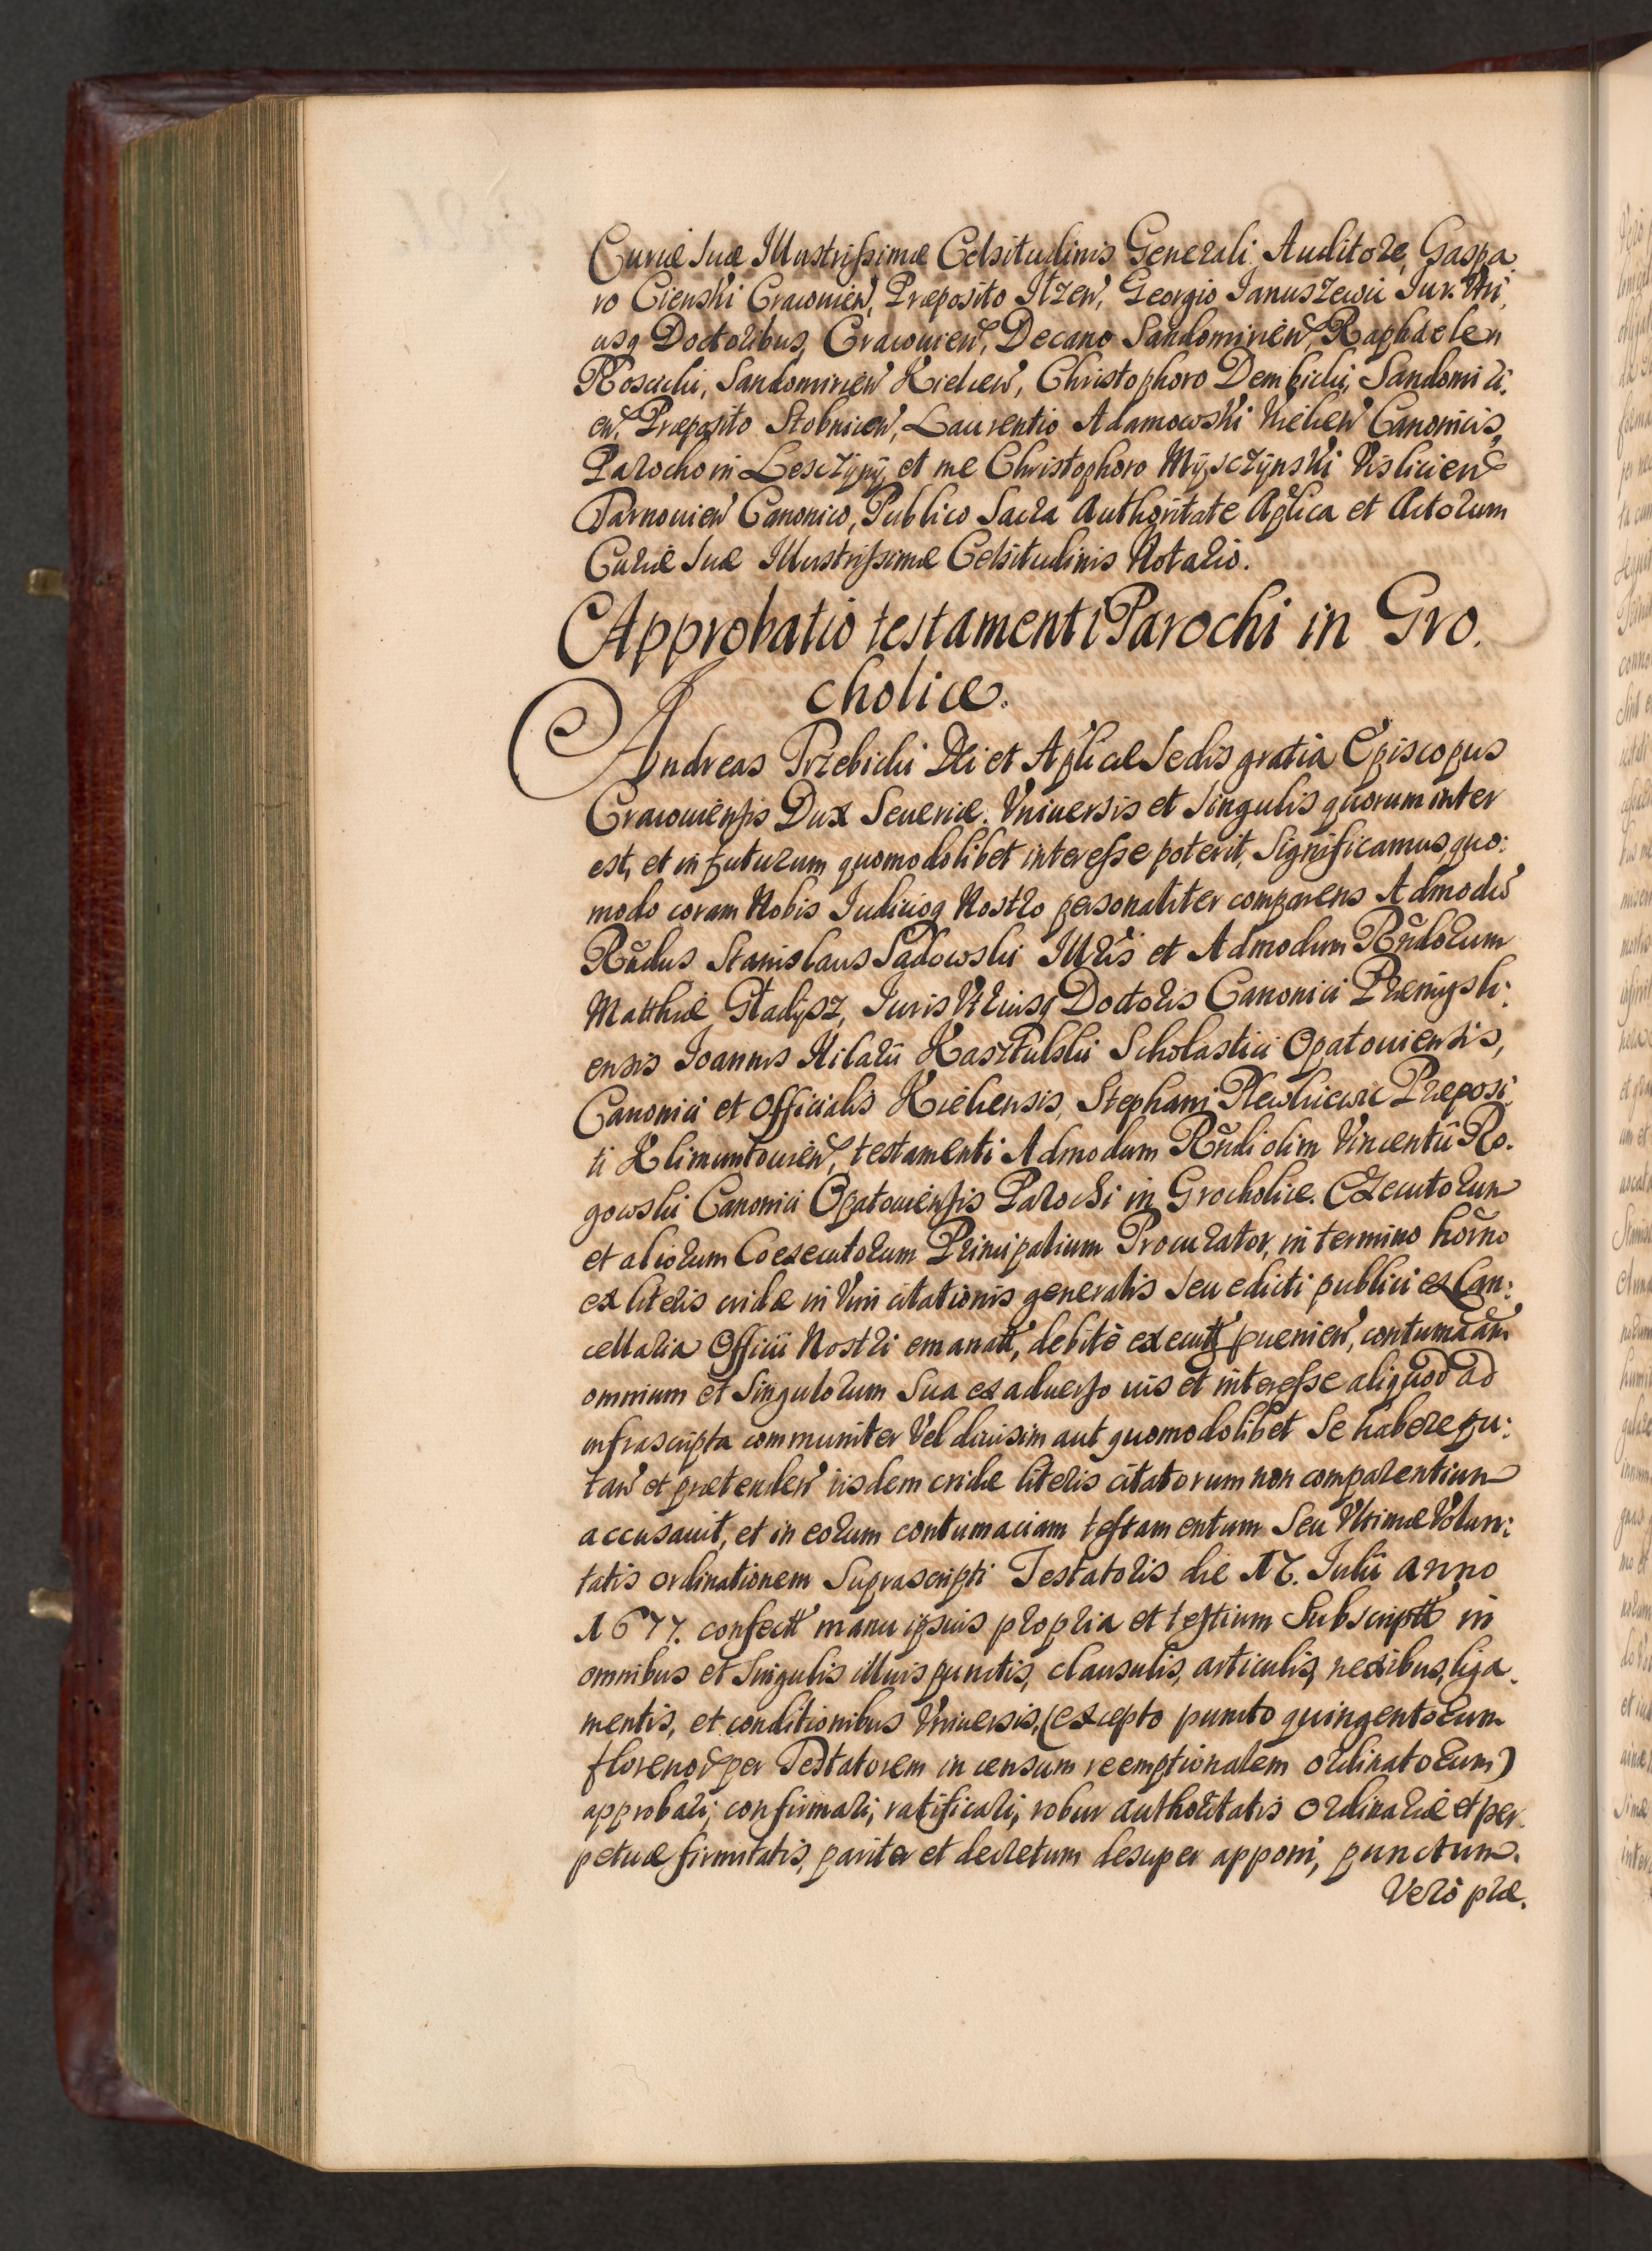 Curiæ Suæ Illustrissimæ Celsitudinis Generali Auditore, Gaspa:
ro Cienski Cracouien̄, Præposito Ilzen̄, Georgio Ianuszewic Iur. Utri:
usq Doctoribus, Cracouien̄, Decano Sandomirien̄, Raphaele
Roscicki, Sandomirien̄ Kielcen̄, Christophoro Dembicki, Sandomiri:
en̄, Præposito Stobnicen̄, Laurentio Adamowski Kielcen̄ Canonicis,
Parocho in Lesczyny, et me Christophoro Myszczynski Vislicien̄
Tarnouien̄ Canonico, Publico Sacra Authoritate Ap̄lica et Actorum
Curiæ Suæ Illustrissimæ Celsitudinis Notario.
Approbatio testamenti Parochi in Gro:
cholice.
Andreas Trzebicki Dei et Ap̄licæ Sedis gratia Episcopus
Cracouiensis Dux Seueriæ. Vniuersis et Singulis quorum inter
est, et in futurum quomodolibet interesse poterit, Significamus, quo:
modo coram Nobis Iudicioq Nostro personaliter comparens Admodū
Rn̄dus Stanislaus Sadowski Illr̄is et Admodum Rn̄dorum
Matthiæ Gladysz, Iuris Vtriusq Doctoris Canonici Præmysli:
ensis Ioannis Hilarii Kasztulski Scholastici Opatouiensis,
Canonici et Officialis Kielcensis, Stephani Plewkiewic Præposi:
ti Klimuntouien̄, testamenti Admodum Rn̄di olim Vincentii Ro:
gowski Canonici Opatouiensis Parochi in Grocholice. Executorum
et aliorum Coexecutorum Principalium Procurator, in termino hōrno
ex literis cridæ in Vim citationis generalis seu edicti publici ex Can:
cellaria Officii Nostri emanatt̄, debitè executt̄ puenien̄, contumaciam
omnium et Singulorum Sua ex aduerso ius et interesse aliquod ad
infrascripta communiter Vel diuisim aut quomodolibet Se habere pu:
tan̄ et prætenden̄ iisdem cridæ literis citatorum non comparentium
accusauit, et in eorum contumaciam testamentum Seu Vltimæ Volun:
tatis ordinationem Suprascripti Testatoris die 17. Iulii anno
1677. confectt̄ manu ipsius propria et testium Subscriptt̄ in
omnibus et Singulis illius punctis, clausulis, articulis, nexibus, liga:
mentis, et conditionibus Vniuersis, (excepto puncto quingentorum
florenor̄ per Testatorem in censum reemptionalem ordinatorum)
approbari, confirmari, ratificari, robur authoritatis ordinariæ et per:
petuæ firmitatis, pariter et decretum desuper apponi, punctum
Verò præ: